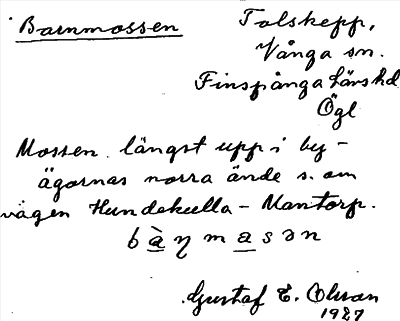 Barnmossen
Tolskepp,
Vånga sn.
Finspånga läns hd
Ögl
Mossen längst upp i by-
ägornas norra ände s. om
vägen Hundekulla - Mantorp.
bàꞃmasən
Gustaf E. Olsson
1927